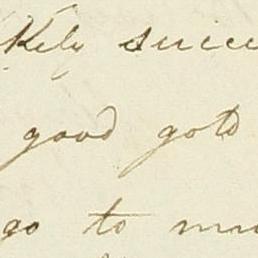 kely succe
good gold
go to mu